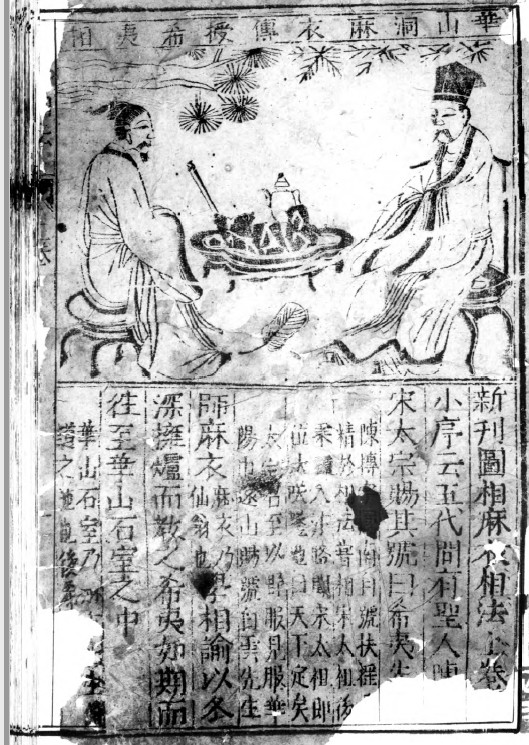 華山洞麻衣傳授希夷相
新刊圖相麻衣相法上卷
小序云五代間有聖人陳
宋太宗賜其號曰希夷先
陳摶 號扶搖
精於相法嘗相宋太祖後
乘驢入汴路聞宋太祖即
位大咲墜驢曰天下定矣
太宗召至以野服見服華
陽巾還山賜號白雲先生
師麻衣麻衣乃仙翁也學相諭以冬
深擁爐而教之希夷如期而
往至華山石室之中
華山石室乃
道之 後